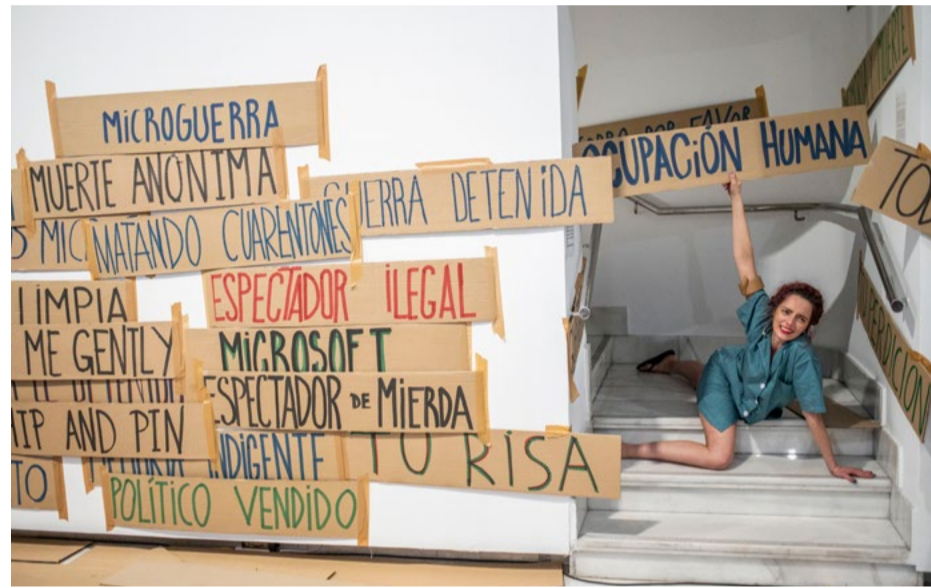 MiCROGUERRA
MUERTE ANÓNIMA
GUERRA DETENiDA
MATANDO CUARENTONES
ESPECTADOR iLEGAL
LIMPIA
ME GENTLY
MiCROSOFT
ESPECTADOR DE MiERDA
AND PIN
INDIGENTE
TU RISA
TO
POLÍTICO VENDIDO
POR FAVOR
OCUPACIÓN HUMANA
MUERTE
TOD